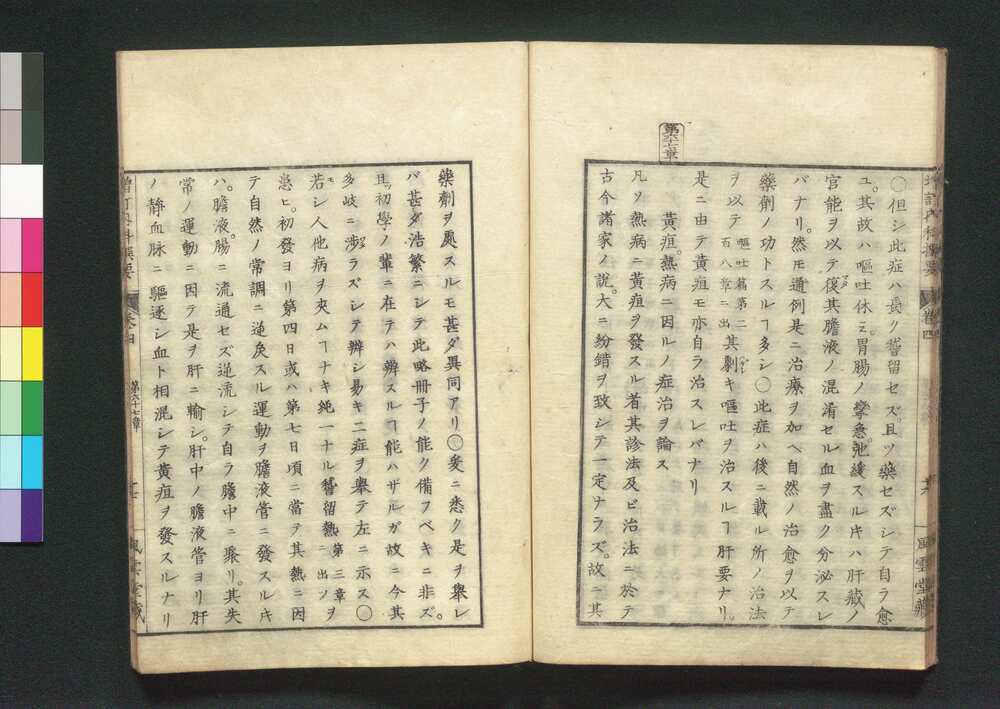 増訂内科撰要 卷四 風雲堂藏
〇但シ此症ハ最ク稽留セズ。且ツ藥セズシテ自ラ愈
ユ。其故ハ嘔吐休ミ。胃腸ノ攣急。弛緩スルキハ肝臓ノ
官能ヲ以テ復其膽液ノ混淆セル血ヲ盡ク分泌スレ
バナリ。然𪜈通例是ニ治療ヲ加ヘ自然ノ治愈ヲ以テ
藥劑ノ功トスルヿ多シ〇此症ハ後ニ載ル所ノ治法
ヲ以テ嘔吐篇第二百八章ニ出其劇キ嘔吐ヲ治スルヿ肝要ナリ。
是ニ由テ黄疸モ亦自ラ治スレバナリ
黄疸。熱病ニ因ルノ症治ヲ論ス
第六十七章
凡ソ熱病ニ黄疸ヲ發スル者其診法及ビ治法ニ於テ
古今諸家ノ説。大ニ紛錯ヲ致シテ一定ナラズ。故ニ其
藥劑ヲ處スルモ甚ダ異同アリ〇爰ニ悉ク是ヲ擧レ
バ甚ダ浩繁ニシテ此略冊子ノ能ク備フベキニ非ズ。
且ツ初學ノ輩ニ在テハ辨スルヿ能ハザルガ故ニ今其
多岐ニ涉ラズシテ辨シ易キ二症ヲ擧テ左ニ示ス〇
若シ人他病ヲ夾ムヿナキ純一ナル稽留熱第三章ニ出ツヲ
患ヒ。初發ヨリ第四日或ハ第七日頃ニ當テ其熱ニ因
テ自然ノ常調ニ逆戻スル運動ヲ膽液管ニ發スルキ
ハ。膽液。腸ニ流通セズ逆流シテ自ラ膽中ニ聚リ。其失
常ノ運動ニ因テ是ヲ肝ニ輸シ。肝中ノ膽液管ヨリ肝
ノ靜血脉ニ驅逐シ血ト相混シテ黄疸ヲ發スルナリ
増訂内科撰要 卷四 第六十七章 十七 風雲堂藏